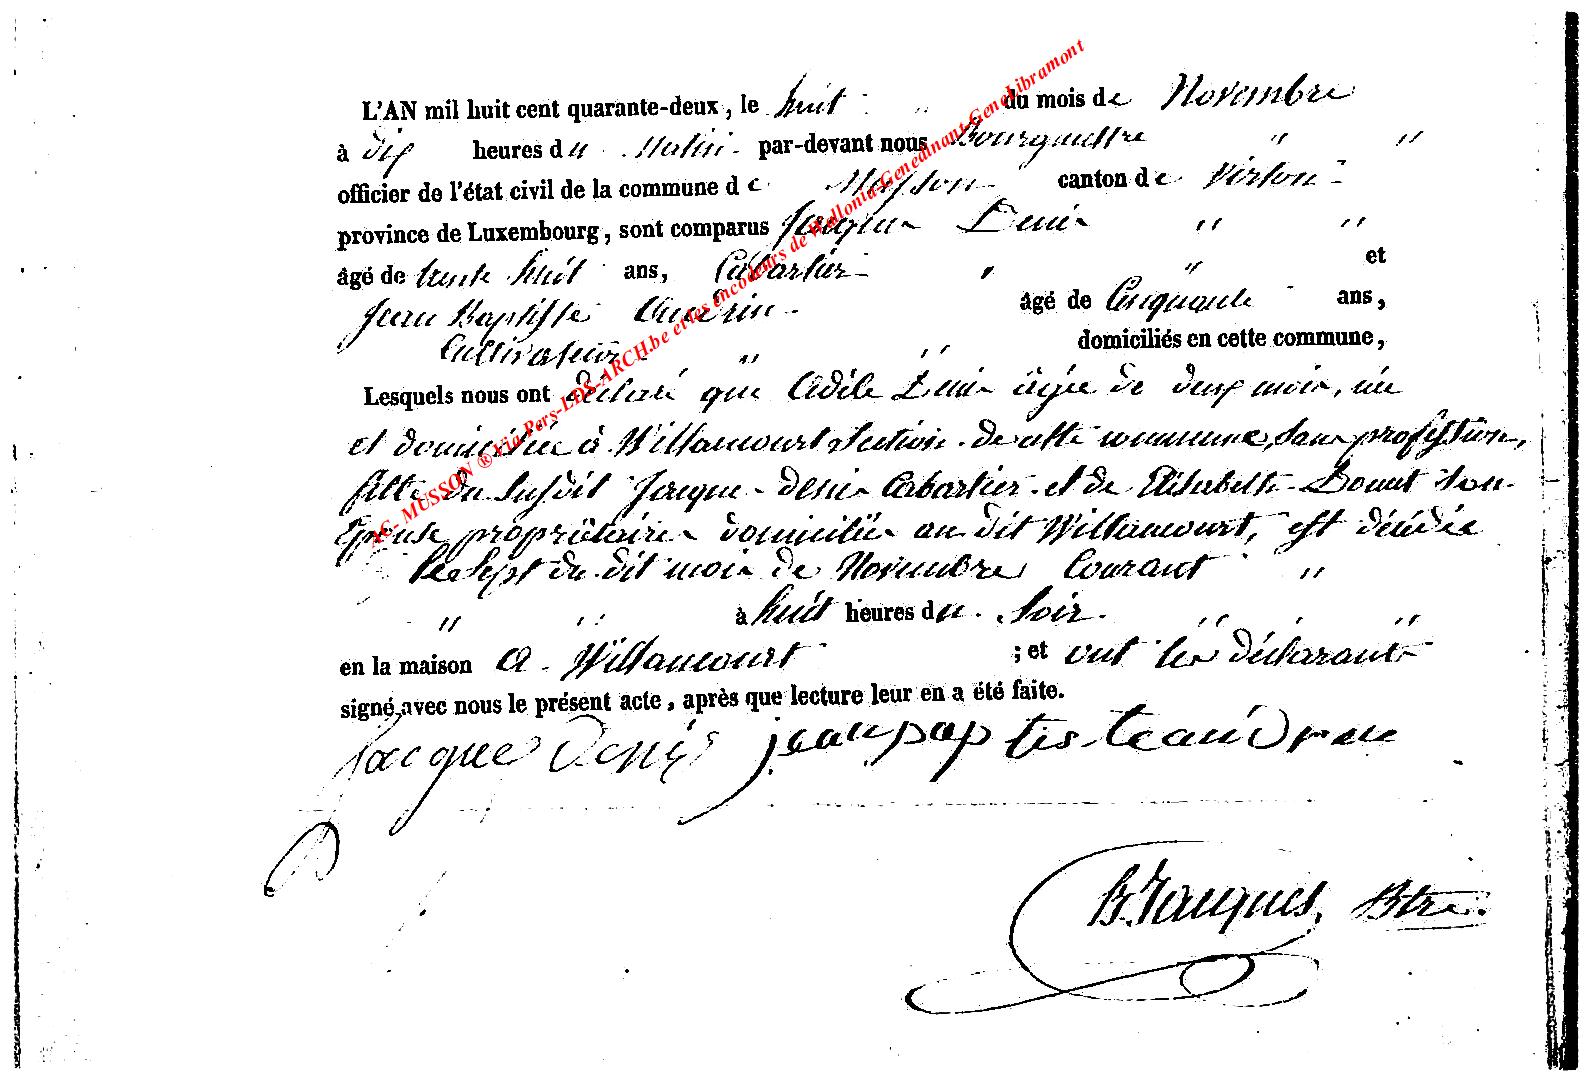 L'AN mil huit cent quarante-deux, le huit " du mois de Novembre
à dix heures du Matin par-devant nous Bourgmestre " "
officier de l'état civil de la commune de Musson canton de Virton
province de Luxembourg, sont comparus Jacques Denis " "
âgé de trente huit ans, Cabartier " " et
Jean Baptiste âgé de Cinquante ans,
Cultivateur " " domiciliés en cette commune,
Lesquels nous ont déclaré que Adèle Denis âgée de deux mois, née
et domiciliée à Willancourt section de cette commune, sans profession,
fille du susdit Jacques denis Cabartier et de Elisabeth son
Epouse propriétaires domiciliés au dit Willancourt, est décédée
le Sept du dit mois de Novembre Courant "
" " à huit heures du Soir " "
en la maison à Willancourt ; et ont les déclarants
signé avec nous le présent acte, après que lecture leur en a été faite.
jacque denis jean bap tis te
B. Jacques, Btre.
A.C- MUSSON ® via Pers-LDS-ARCH.be et les encodeurs de Wallonia-Genedinant-GeneLibramont